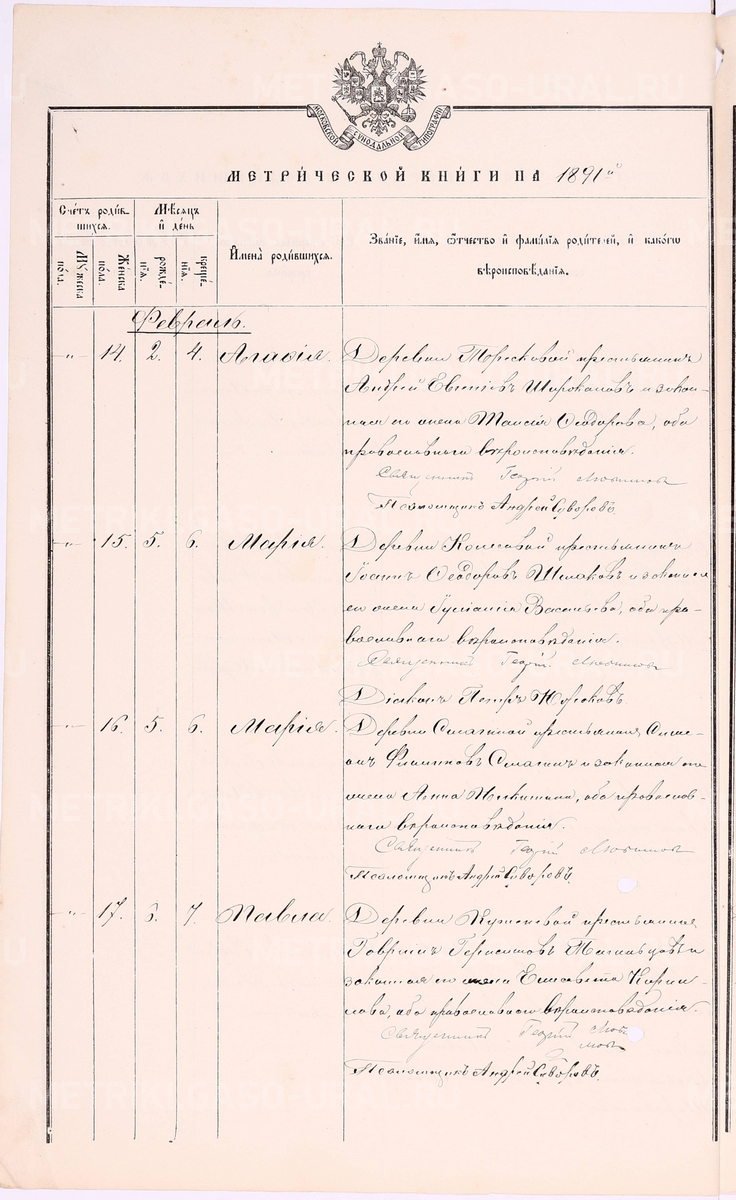 МОСКОВСКОЙ СУНОДАЛЬНОЙ ТИПОГРАФІИ
МЕТРИ́ЧЕСКОЙ КНИ́ГИ НА 1891й
Сче́тъ роди́вшихся.
Мѣ́сяцъ и҆ де́нь
И҆мена̀ роди́вшихся.
Зва́ніе, и҆́мя, ѻ҆́тчество и҆ фами́лія роди́телей, и҆ како́гѡ
вѣроисповѣ́данія.
Му́жеска по́ла.
Же́нска по́ла.
рожде́нія.
креще́нія.
Февраль.
-"- 14. 2. 4. Агаѳія. Деревни крестьянинъ
Андрей Широкановъ и закон-
ная его жена Таисія Ѳеодорова, оба
православнаго вѣроисповѣданія.
Священникъ Георгій Любимовъ
Псаломщикъ Андрей Суворовъ.
-"- 15. 5. 6. Марія. Деревни Колесовой крестьянинъ
Іоаннъ Ѳеодоровъ Шмаковъ и законная
его жена Іуліанія Васильева, оба пра-
вославнаго вѣроисповѣданія.
Священникъ Георгій Любимовъ
Діаконъ Петръ
-"- 16. 5. 6. Марія. Деревни Смагиной крестьянинъ Симе-
онъ Филипповъ Смагинъ и законная его
жена Анна Никитина, оба православ-
наго вѣроисповѣданія.
Священникъ Георгій Любимовъ
Псаломщикъ Андрей Суворовъ.
-"- 17. 6. 7. Павла. Деревни крестьянинъ
Гавріилъ Герасимовъ и
законная его жена Елисавета Кирил-
лова, оба православнаго вѣроисповѣданія.
Священникъ Георгій Люби-
мовъ
Псаломщикъ Андрей Суворовъ.